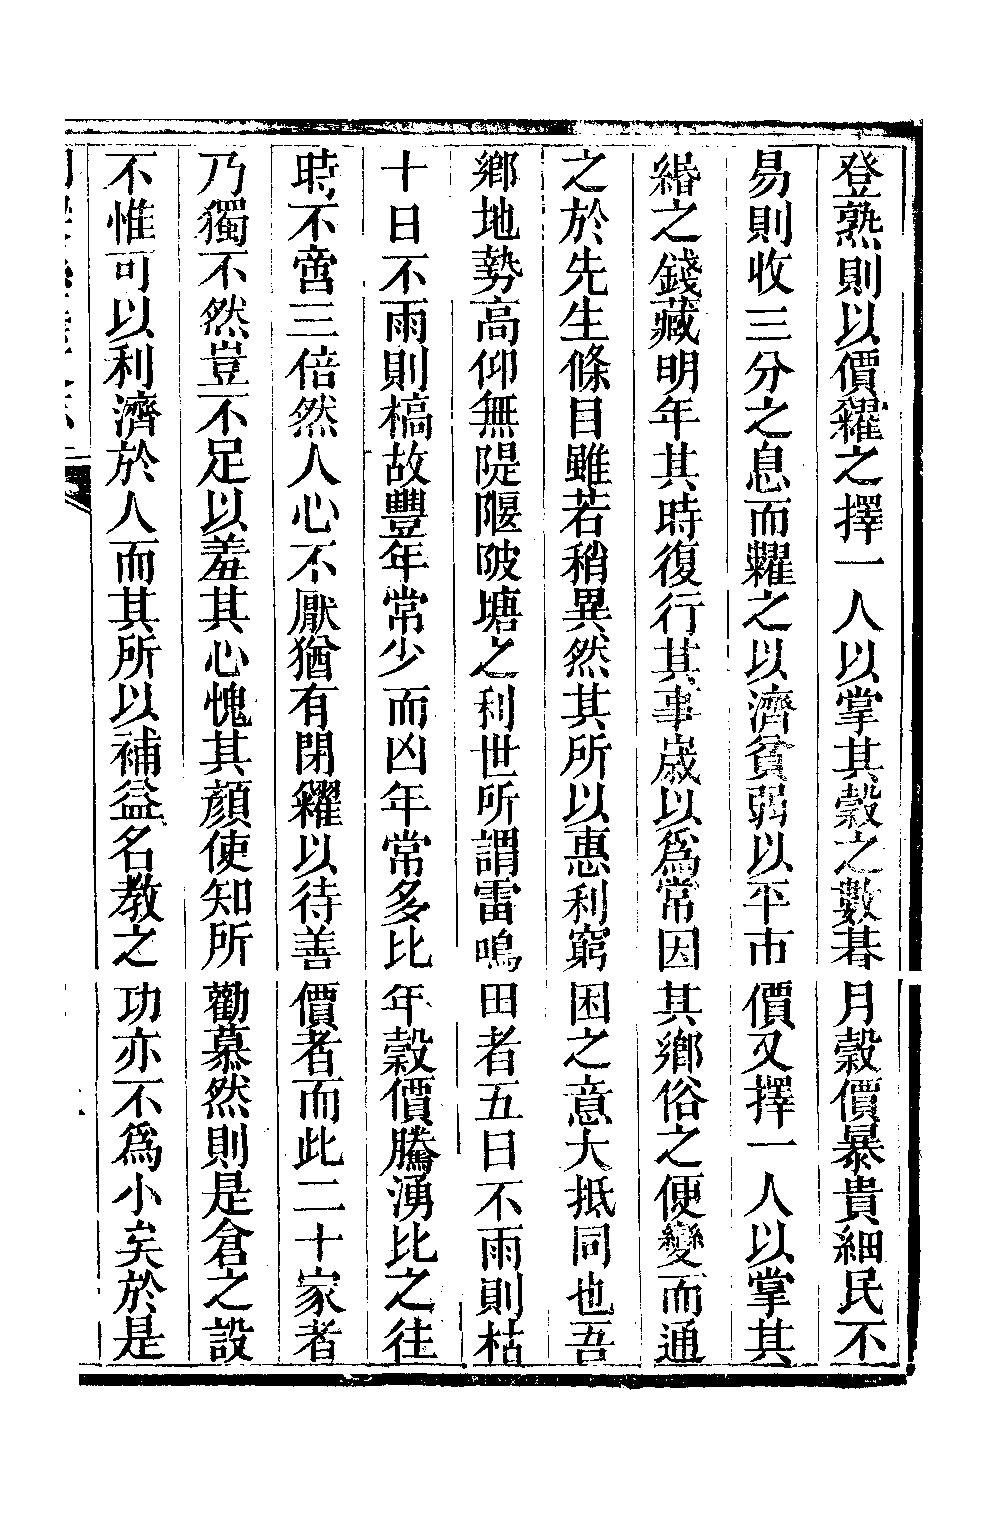 登熟則以價糴之擇一人以掌其穀之數朞月穀價暴貴細民不
易則收三分之息而糶之以濟貧弱以平市價又擇一人以掌其
緡之錢藏明年其時復行其事歲以爲常因其鄉俗之便變而通
之於先生條目雖若稍異然其所以惠利窮困之意大抵同也吾
鄉地勢高仰無隄堰陂塘之利世所謂雷鳴田者五日不雨則枯
十日不雨則槁故豐年常少而凶年常多比年穀價騰湧比之往
時不啻三倍然人心不厭猶有閉糴以待善價者而此二十家者
乃獨不然豈不足以羞其心愧其顏使知所勸慕然則是倉之設
不惟可以利濟於人而其所以補益名教之功亦不爲小矣於是